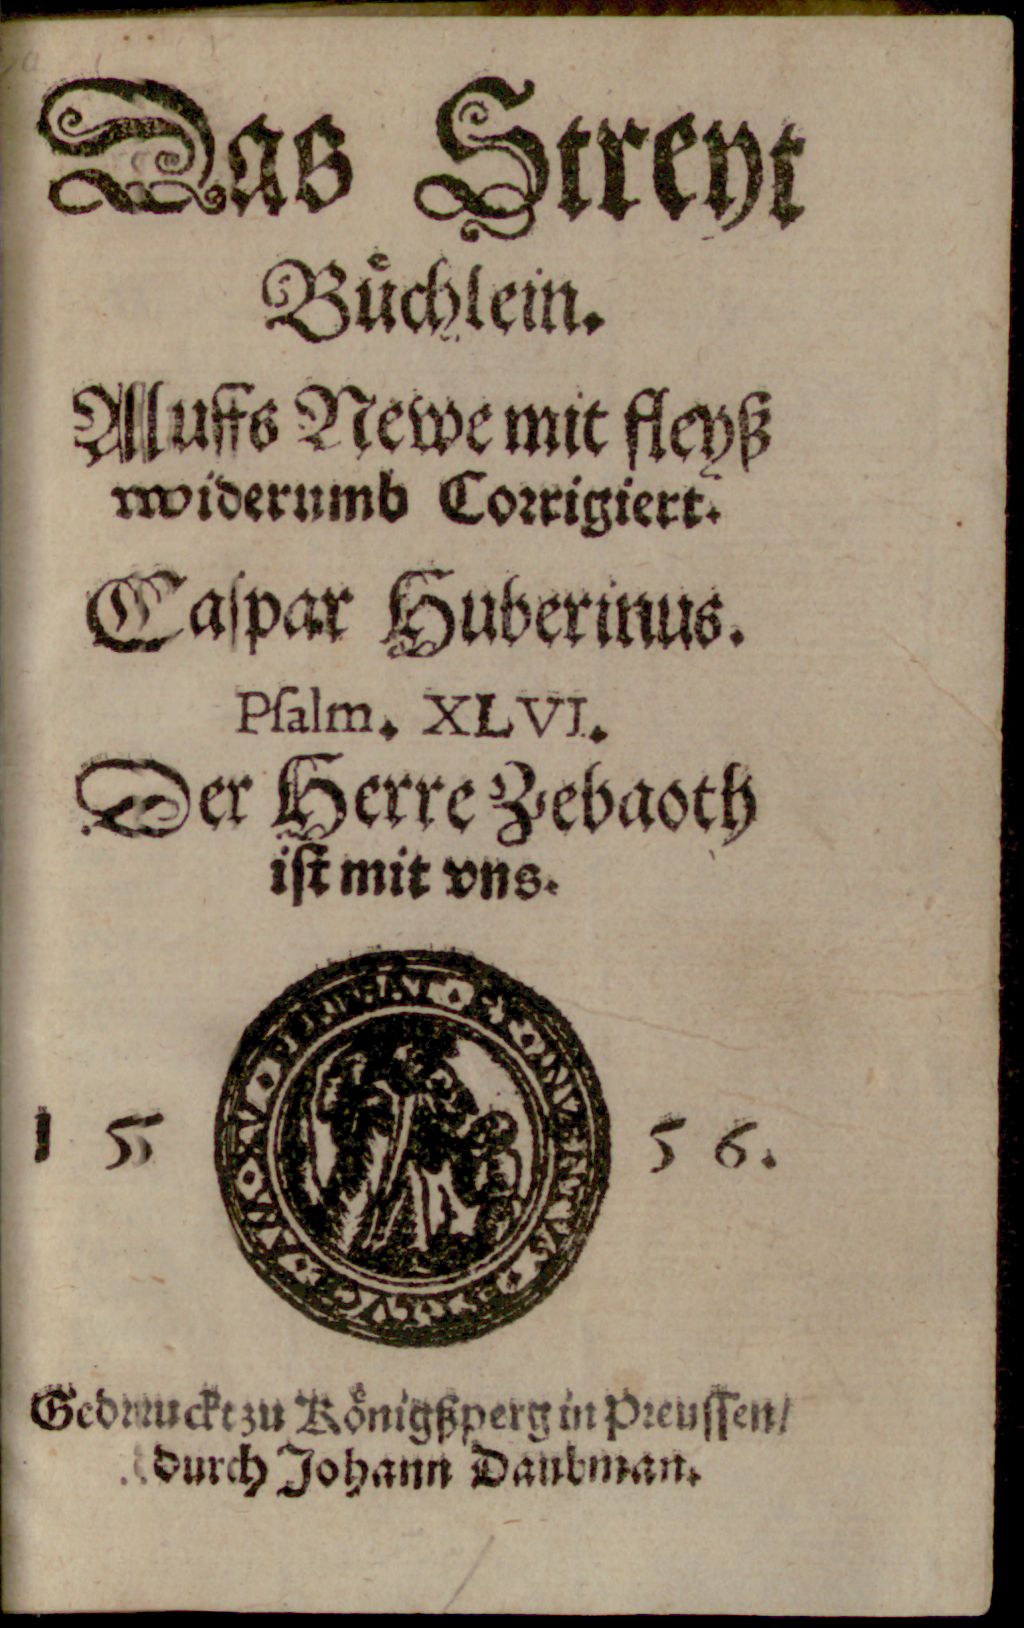 Das Streyt
Büchlein.
Auffs Newe mit fleyß
widerumb Corrigiert.
Caspar Huberinus.
Psalm. XLVI.
Der Herre Zebaoth
ist mit vns.
1 5 5 6.
Gedruckt zu Königßperg in Preussen/
durch Johann Daubman.